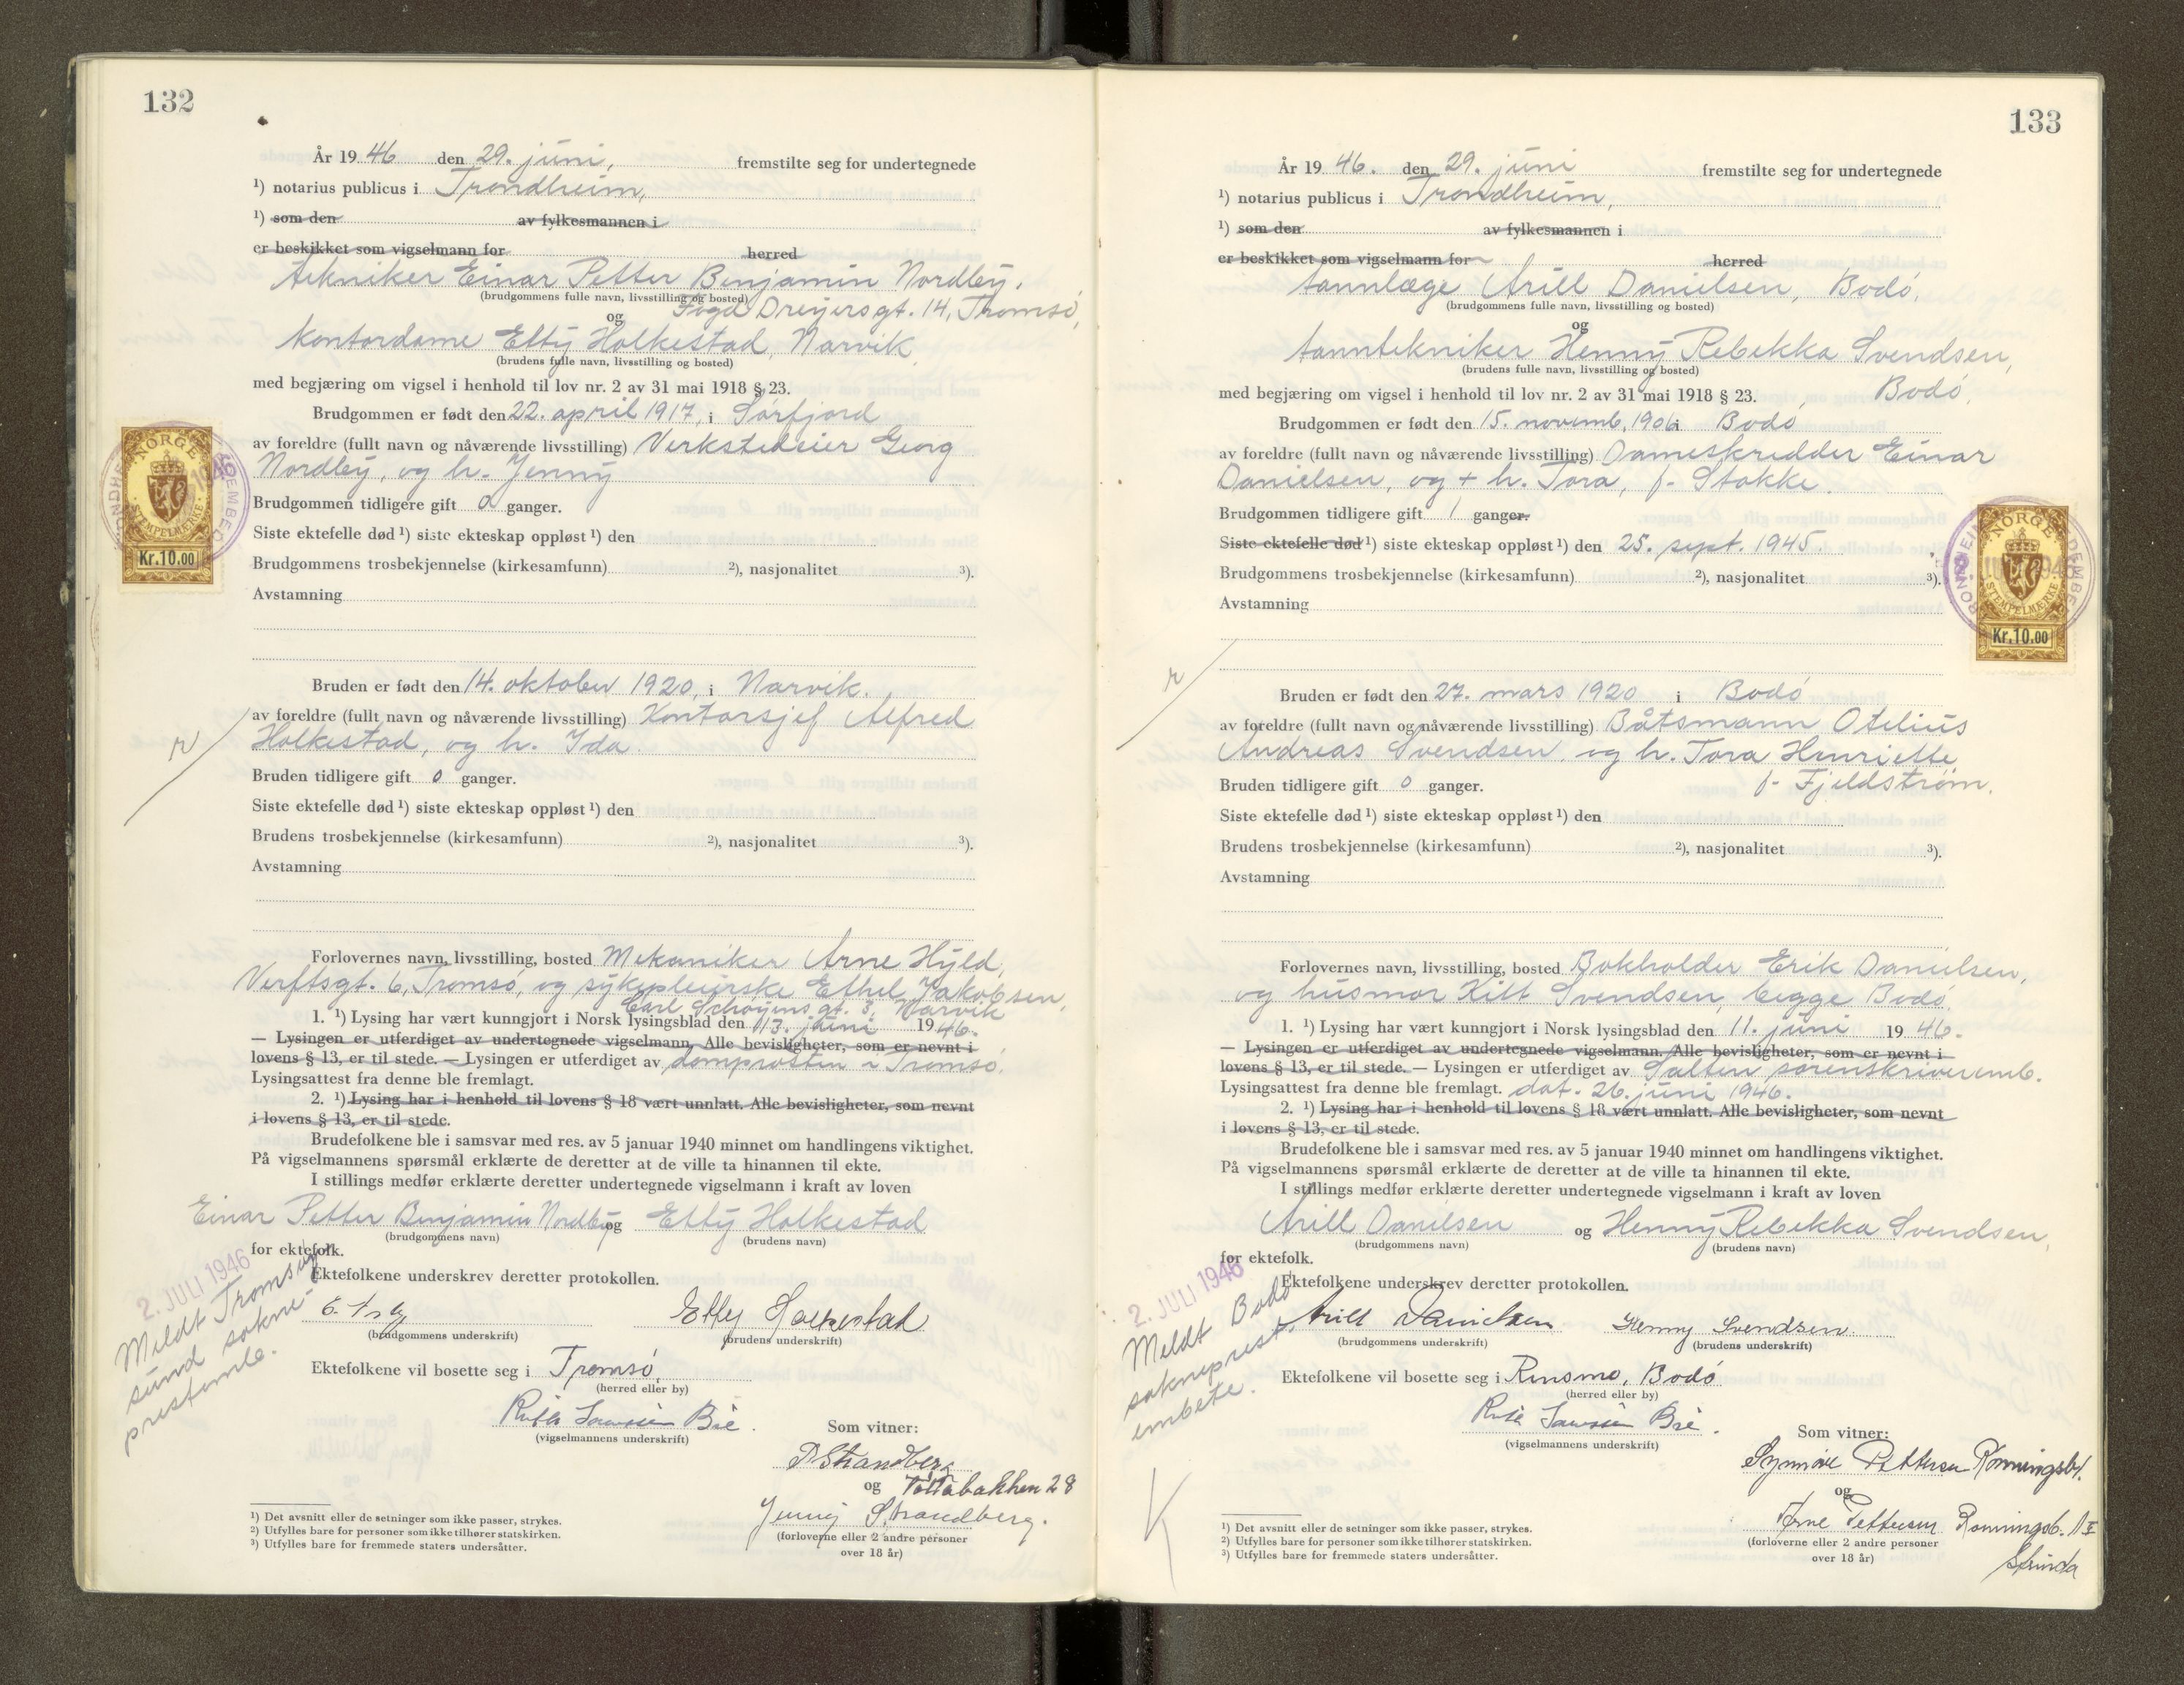 132
År 1946 den 29. juni, fremstilte seg for undertegnede
¹) notarius publicus i Trondheim,
¹) som den av fylkesmannen i
er beskikket som vigselmann for herred
tekniker Einar Petter Benjamin Nordby,
(brudgommens fulle navn, livsstilling og bosted)
Fogd Dreyersgt. 14, Tromsö,
og
kontordame Etty Holkestad, Narvik
(brudens fulle navn, livsstilling og bosted)
med begjæring om vigsel i henhold til lov nr. 2 av 31 mai 1918 § 23.
Brudgommen er født den 22. april 1917, i Sörfjord
av foreldre (fullt navn og nåværende livsstilling) Verkstedeier Georg
Nordby, og h. Jenny
Brudgommen tidligere gift 0 ganger.
Siste ektefelle død ¹) siste ekteskap oppløst ¹) den
Brudgommens trosbekjennelse (kirkesamfunn) ²), nasjonalitet ³).
Avstamning
NORGE
STEMPELMÆRKE
Kr.10.00
Bruden er født den 14. oktober 1920, i Narvik.
av foreldre (fullt navn og nåværende livsstilling) Kontorsjef Alfred
Holkestad, og h. Ida.
Bruden tidligere gift 0 ganger.
Siste ektefelle død ¹) siste ekteskap oppløst ¹) den
Brudens trosbekjennelse (kirkesamfunn) ²), nasjonalitet ³).
Avstamning
Forlovernes navn, livsstilling, bosted Mekaniker Arne Hyld,
Verftsgt. 6, Tromsö, og sykepleierske Ethel Jakobsen,
Carl Schöyens gt. 3, Narvik
1. ¹) Lysing har vært kunngjort i Norsk lysingsblad den 13. juni 1946.
— Lysingen er utferdiget av undertegnede vigselmann. Alle bevisligheter, som er nevnt i
lovens § 13, er til stede. — Lysingen er utferdiget av domprosten i Tromsö.
Lysingsattest fra denne ble fremlagt.
2. ¹) Lysing har i henhold til lovens § 18 vært unnlatt. Alle bevisligheter, som nevnt
i lovens § 13, er til stede.
Brudefolkene ble i samsvar med res. av 5 januar 1940 minnet om handlingens viktighet.
På vigselmannens spørsmål erklærte de deretter at de ville ta hinannen til ekte.
I stillings medfør erklærte deretter undertegnede vigselmann i kraft av loven
Einar Petter Benjamin Nordby og Etty Holkestad
(brudgommens navn) (brudens navn)
for ektefolk.
Ektefolkene underskrev deretter protokollen.
2. JULI 1946
Meldt Tromsöy-
sund sokne-
prestemb.
Etty Holkestad
(brudgommens underskrift) (brudens underskrift)
Ektefolkene vil bosette seg i Tromsö,
(herred eller by)
(vigselmannens underskrift)
Som vitner:
P Strandberg
og
Jenny Strandberg.
(forloverne eller 2 andre personer
over 18 år)
¹) Det avsnitt eller de setninger som ikke passer, strykes.
²) Utfylles bare for personer som ikke tilhører statskirken.
³) Utfylles bare for fremmede staters undersåtter.
133
År 1946. den 29. juni fremstilte seg for undertegnede
¹) notarius publicus i Trondheim,
¹) som den av fylkesmannen i
er beskikket som vigselmann for herred
tannlæge Arill Danielsen, Bodö,
(brudgommens fulle navn, livsstilling og bosted)
og
tanntekniker Henny Rebekka Svendsen,
(brudens fulle navn, livsstilling og bosted)
Bodö,
med begjæring om vigsel i henhold til lov nr. 2 av 31 mai 1918 § 23.
Brudgommen er født den 15. novemb. 1906 i Bodö
av foreldre (fullt navn og nåværende livsstilling) Dameskredder Einar
Danielsen, og + h. Tora, f. Stokke.
Brudgommen tidligere gift 1 ganger.
Siste ektefelle død ¹) siste ekteskap oppløst ¹) den 25. sept. 1945.
Brudgommens trosbekjennelse (kirkesamfunn) ²), nasjonalitet ³).
Avstamning
NORGE
STEMPELMÆRKE
Kr.10.00
Bruden er født den 27. mars 1920 i Bodö
av foreldre (fullt navn og nåværende livsstilling) Båtsmann Otelius
Andreas Svendsen, og h. Tora Henriette,
f. Fjeldström.
Bruden tidligere gift 0 ganger.
Siste ektefelle død ¹) siste ekteskap oppløst ¹) den
Brudens trosbekjennelse (kirkesamfunn) ²), nasjonalitet ³).
Avstamning
Forlovernes navn, livsstilling, bosted Bokholder Erik Danielsen,
og husmor Kitt Svendsen, begge Bodö.
1. ¹) Lysing har vært kunngjort i Norsk lysingsblad den 11. juni 1946.
— Lysingen er utferdiget av undertegnede vigselmann. Alle bevisligheter, som er nevnt i
lovens § 13, er til stede. — Lysingen er utferdiget av Salten sorenskriveremb.
Lysingsattest fra denne ble fremlagt. dat. 26. juni 1946.
2. ¹) Lysing har i henhold til lovens § 18 vært unnlatt. Alle bevisligheter, som nevnt
i lovens § 13, er til stede.
Brudefolkene ble i samsvar med res. av 5 januar 1940 minnet om handlingens viktighet.
På vigselmannens spørsmål erklærte de deretter at de ville ta hinannen til ekte.
I stillings medfør erklærte deretter undertegnede vigselmann i kraft av loven
Arill Danielsen og Henny Rebekka Svendsen,
(brudgommens navn) (brudens navn)
for ektefolk.
Ektefolkene underskrev deretter protokollen.
2. JULI 1946
Meldt Bodö
sokneprest-
embete.
Arill Danielsen Henny Svendsen.
(brudgommens underskrift) (brudens underskrift)
Ektefolkene vil bosette seg i Rensmo, Bodö
(herred eller by)
(vigselmannens underskrift)
Som vitner:
Synnöve Pettersen
og
Arne Pettersen
Strinda
(forloverne eller 2 andre personer
over 18 år)
¹) Det avsnitt eller de setninger som ikke passer, strykes.
²) Utfylles bare for personer som ikke tilhører statskirken.
³) Utfylles bare for fremmede staters undersåtter.